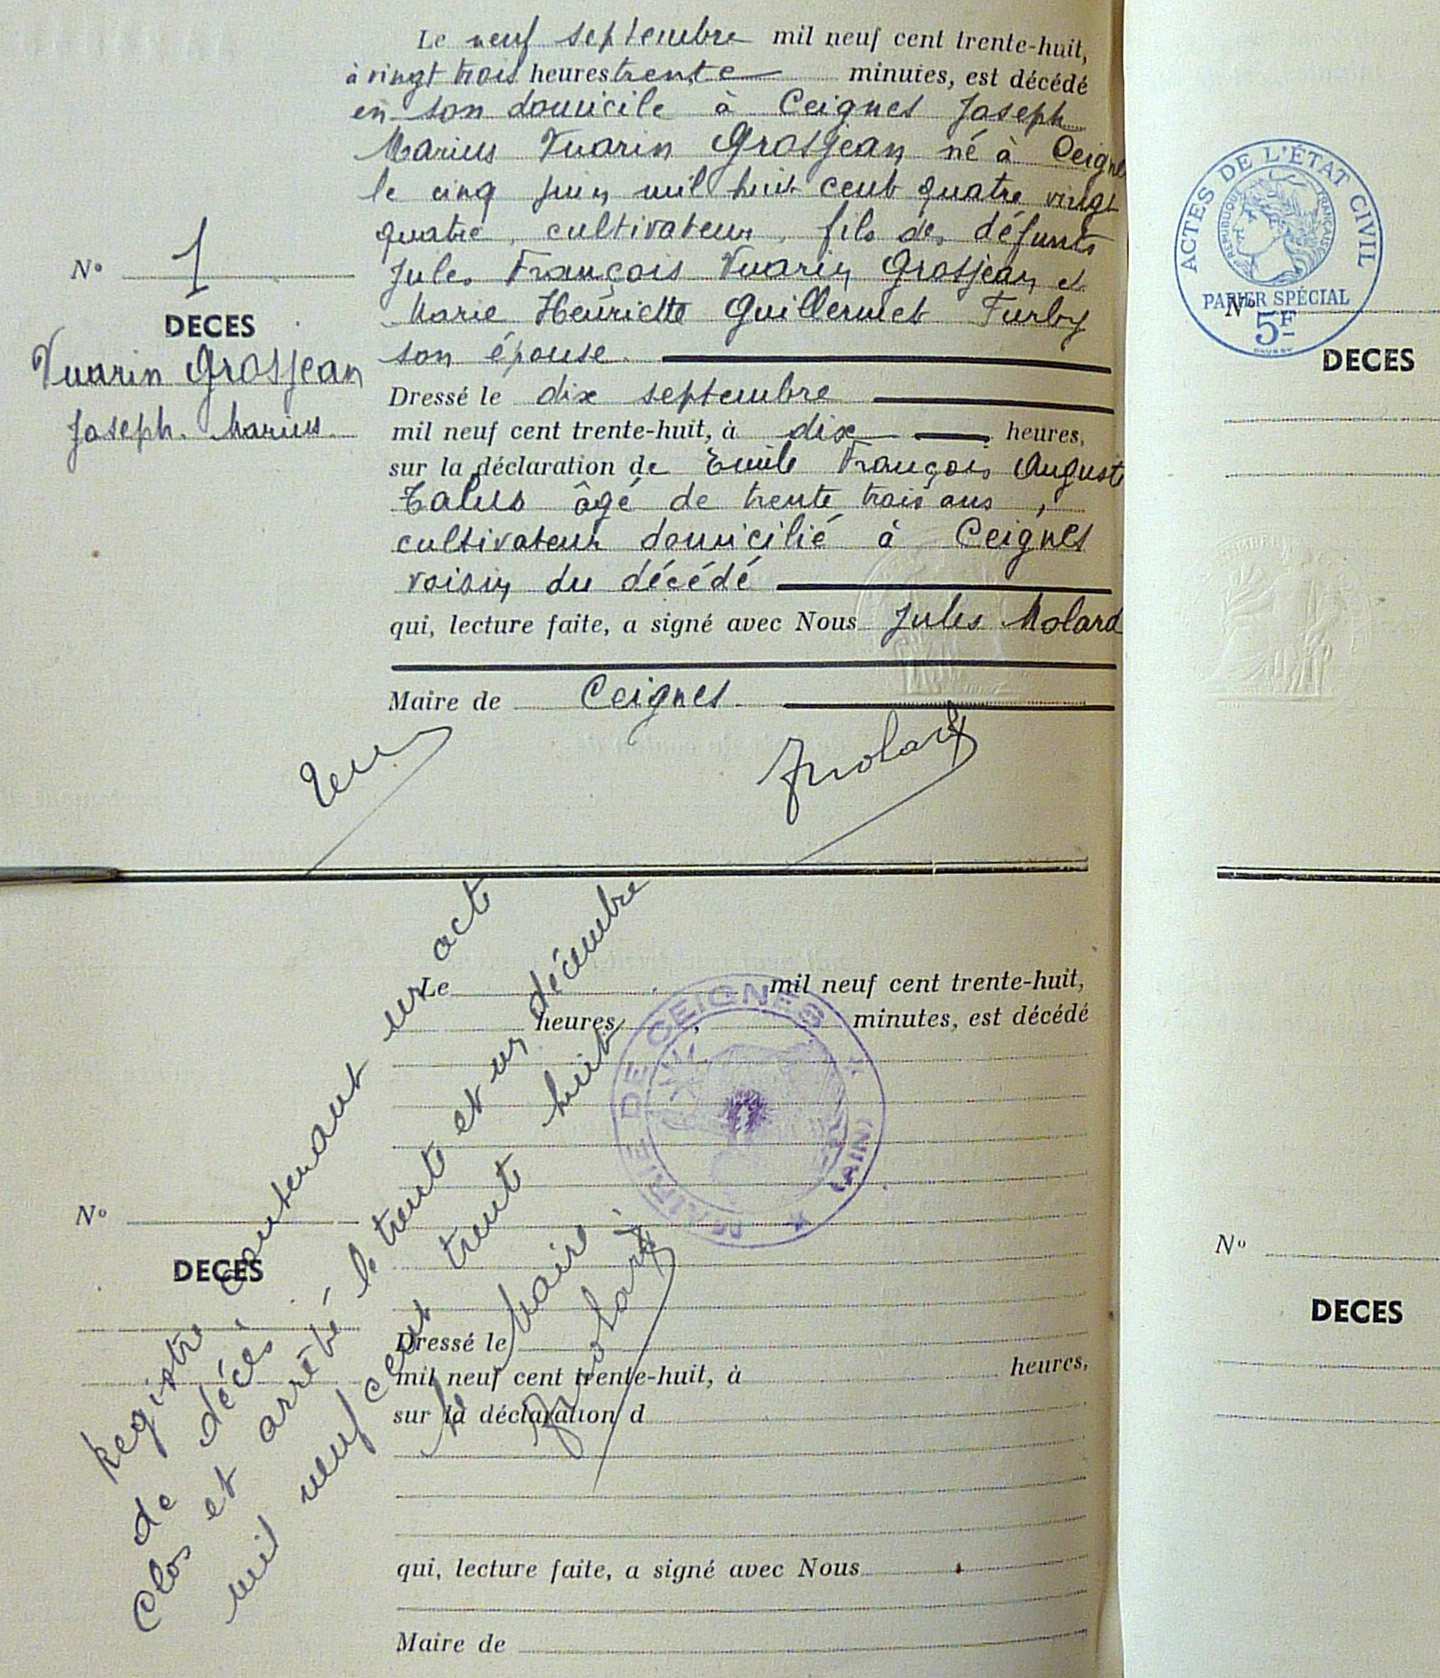 Le neuf septembre mil neuf cent trente-huit,
à vingt trois heures trente minutes, est décédé
en son domicile à Ceignes Joseph
Marius Vuarin Grosjean né à Ceignes
le cinq juin mil huit cent quatre vingt
quatre, cultivateur, fils des défunts
Jules François Vuarin Grosjean et
Marie Henriette Guillermet Furby
son épouse.
Dressé le dix septembre
mil neuf cent trente-huit, à dix heures,
sur la déclaration de Emile François Auguste
âgé de trente trois ans,
cultivateur domicilié à Ceignes
voisin du décédé
qui, lecture faite, a signé avec Nous Jules Molard
Maire de Ceignes
JMolard
No 1
DECES
Vuarin Grosjean
Joseph. Marius.
Le mil neuf cent trente-huit,
heures, minutes, est décédé
Dressé le
mil neuf cent trente-huit, à heures,
sur la déclaration d
qui, lecture faite, a signé avec Nous
Maire de
No
DECES
Registre contenant un acte
de décès
Clos et arrêté le trente et un décembre
mil neuf cent trente huit
Le Maire :
JMolard
MAIRIE DE CEIGNES
(AIN)
ACTES DE L'ÉTAT CIVIL
RÉPUBLIQUE FRANÇAISE
PAPIER SPÉCIAL
5F
No
DECES
No
DECES